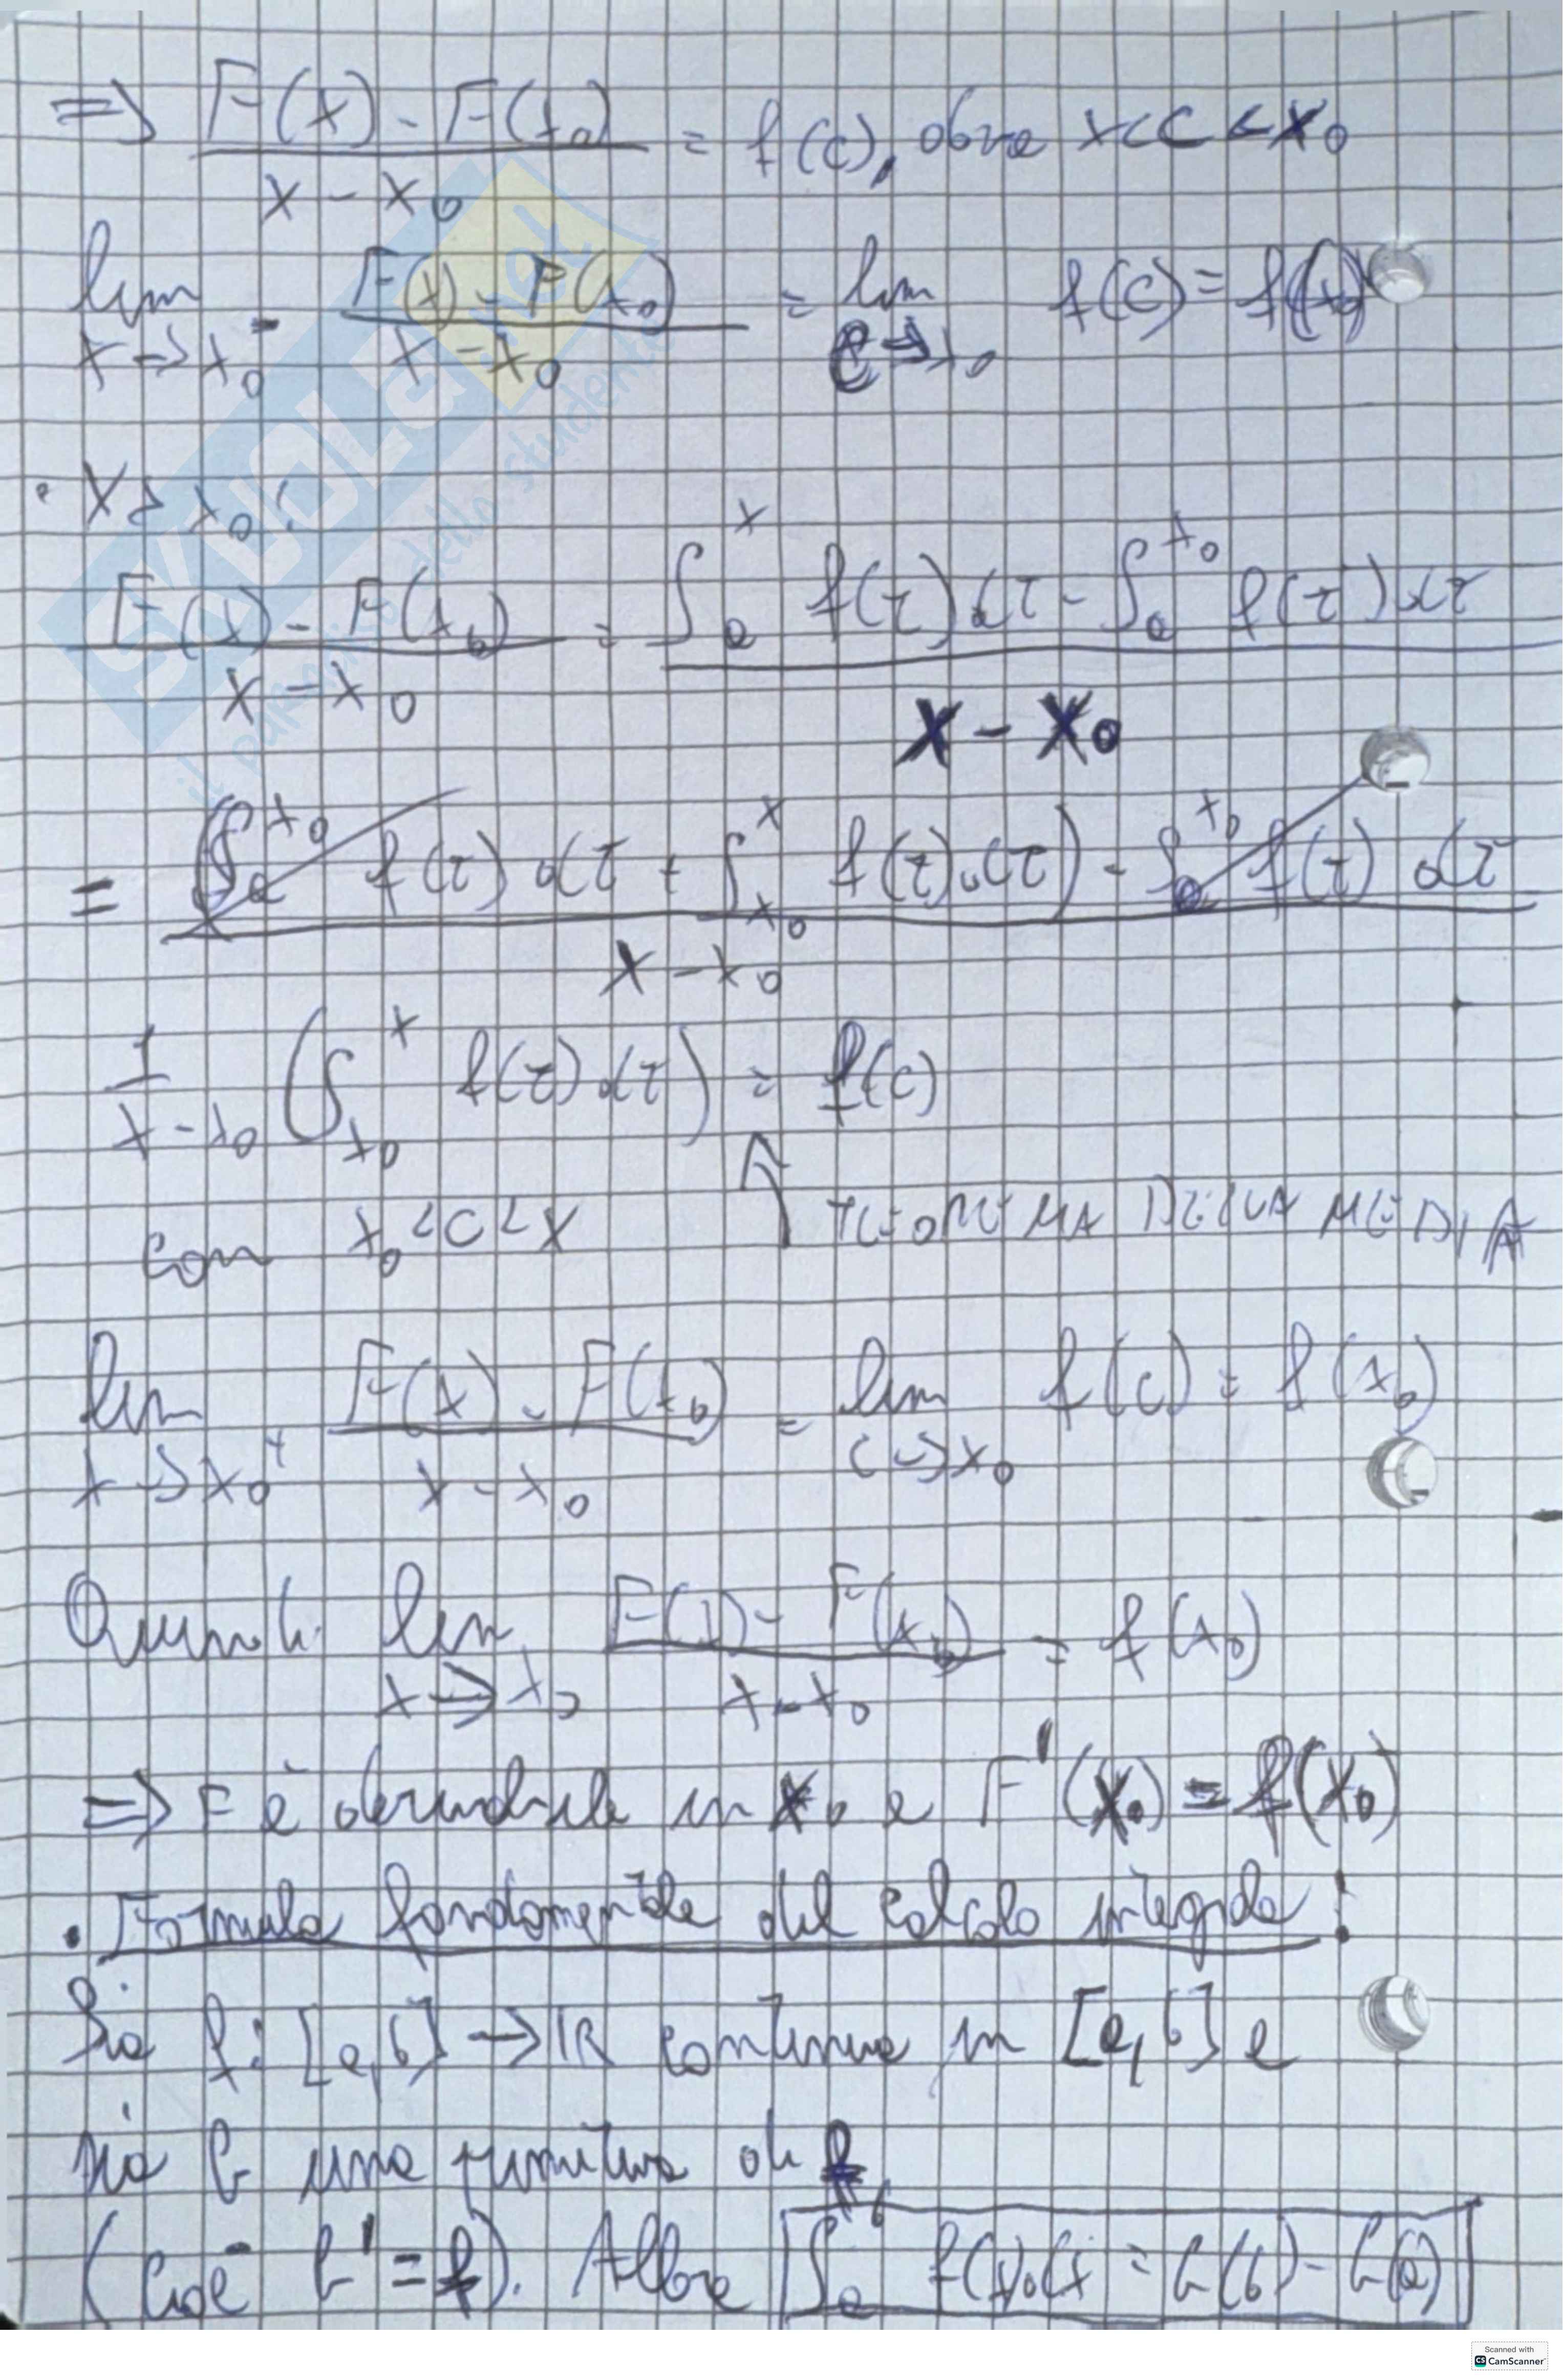 => F(x) - F(x₀) / x - x₀ = f(c), dove x<c<x₀
lim x→x₀⁻ F(x) - F(x₀) / x - x₀ = lim c→x₀ f(c) = f(x₀)
• x > x₀ :
F(x) - F(x₀) / x - x₀ = ∫ₐˣ f(τ)dτ - ∫ₐˣ⁰ f(τ)dτ / x - x₀
= (∫ₐˣ⁰ f(τ)dτ + ∫ₓ₀ˣ f(τ)dτ) - ∫ₐˣ⁰ f(τ)dτ / x - x₀
1 / x - x₀ (∫ₓ₀ˣ f(τ)dτ) = f(c)
con x₀<c<x TEOREMA DELLA MEDIA
lim x→x₀⁺ F(x) - F(x₀) / x - x₀ = lim c→x₀ f(c) = f(x₀)
Quindi lim x→x₀ F(x) - F(x₀) / x - x₀ = f(x₀)
=> F è derivabile in x₀ e F'(x₀) = f(x₀)
• Formula fondamentale del calcolo integrale :
Sia f: [a,b] → ℝ continua in [a,b] e
sia G una primitiva di f,
(cioè G' = f). Allora ∫ₐᵇ f(x)dx = G(b) - G(a)
SKUOLA.net
il paradiso dello studente
Scanned with
CS CamScanner